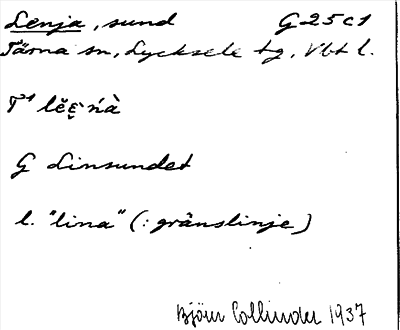 Lenja, sund G25c1
Tärna sn, Lycksele tg, Vbt l.
lĕɛ̮ńà
G Linsundet
l. "lina" (: gränslinje)
Björn Collinder 1937